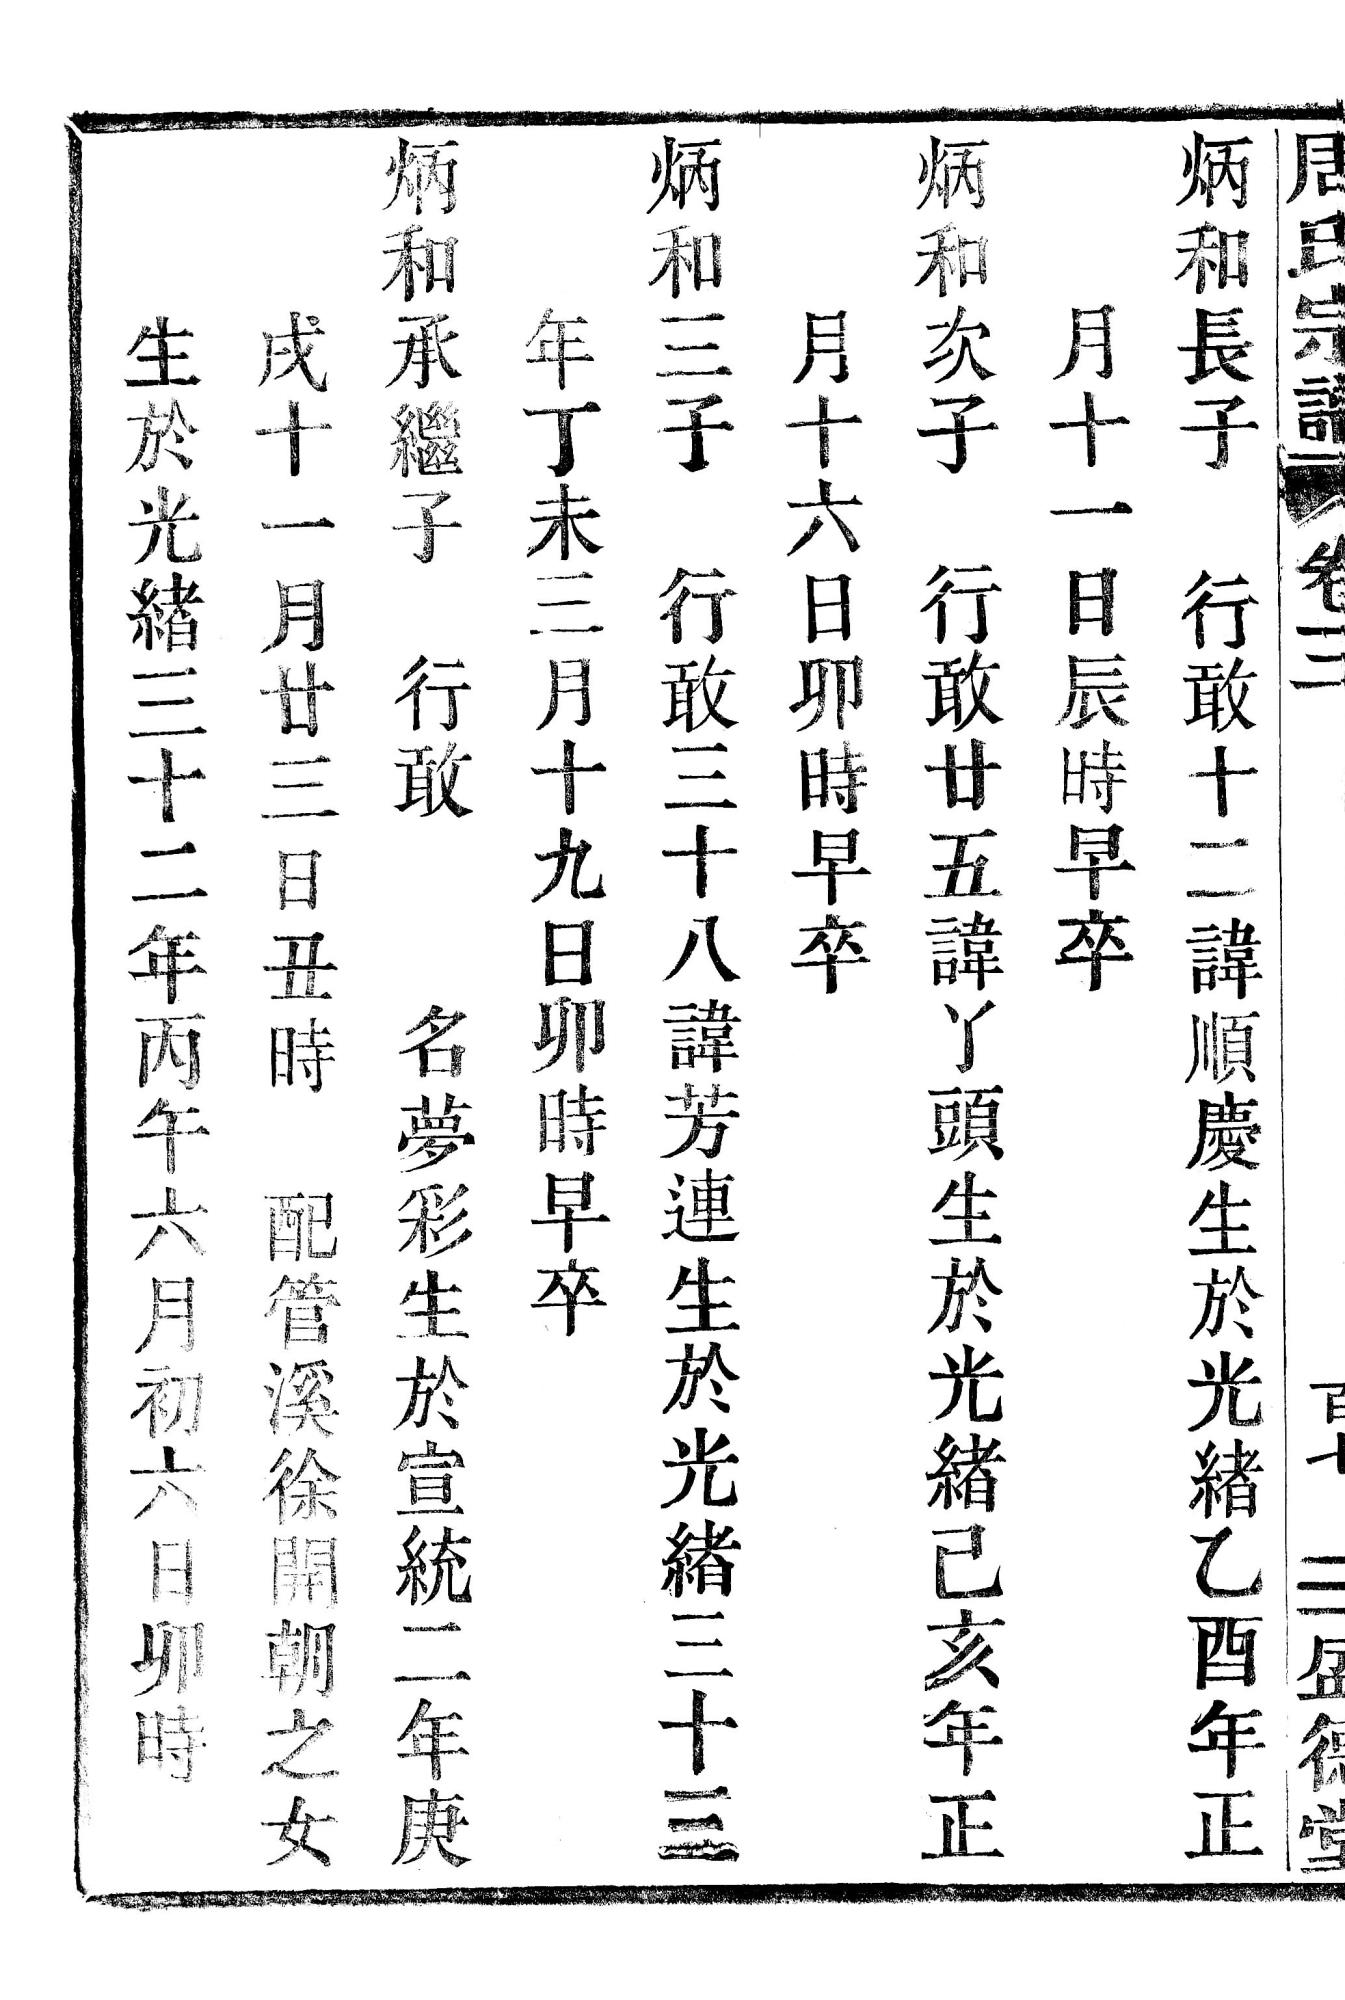 周氏宗譜 卷三 百七 三盛德堂
炳和長子 行敢十二諱順慶生於光緒乙酉年正
月十一日辰時早卒
炳和次子 行敢廿五諱丫頭生於光緒己亥年正
月十六日卯時早卒
炳和三子 行敢三十八諱芳連生於光緒三十三
年丁未三月十九日卯時早卒
炳和承繼子 行敢 名夢彩生於宣統二年庚
戌十一月廿三日丑時 配管溪徐開朝之女
生於光緒三十二年丙午六月初六日卯時